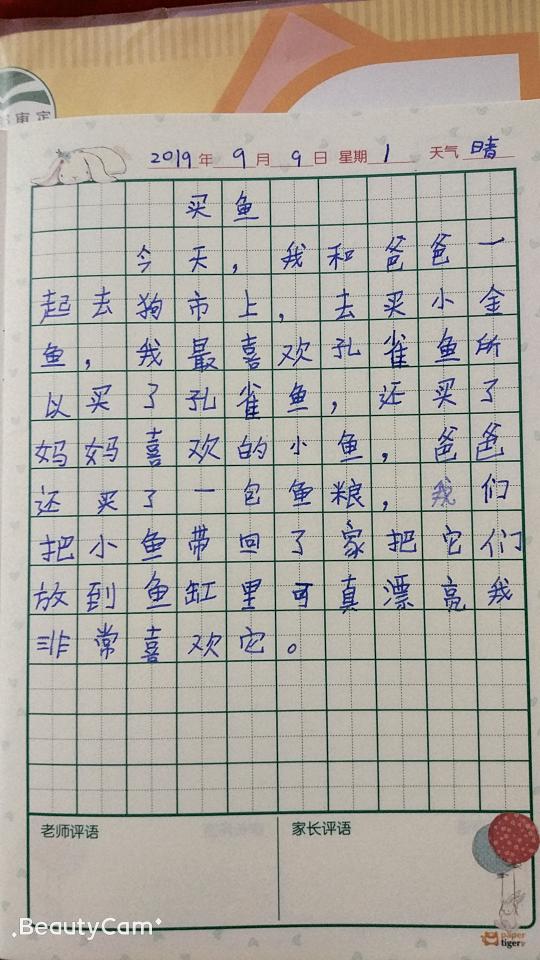 审定
2019年9月9日 星期1 天气晴
买鱼
今天，我和爸爸一
起去狗市上，去买小金
鱼，我最喜欢孔雀鱼所
以买了孔雀鱼，还买了
妈妈喜欢的小鱼，爸爸
还买了一包鱼粮，我们
把小鱼带回了家把它们
放到鱼缸里可真漂亮我
非常喜欢它。
老师评语 家长评语
BeautyCam
paper
tiger